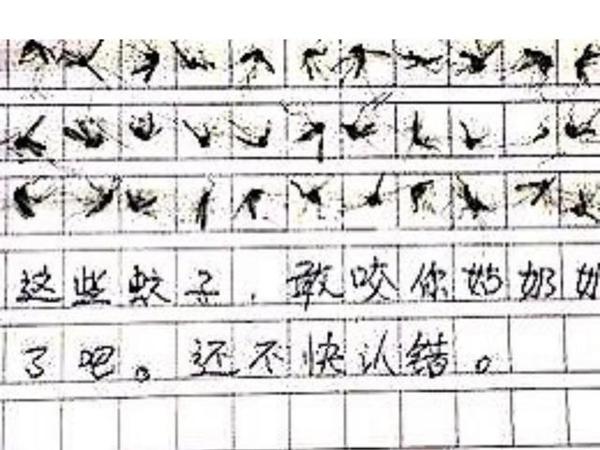 这些蚊子，敢咬你姑奶奶
了吧。还不快认错。